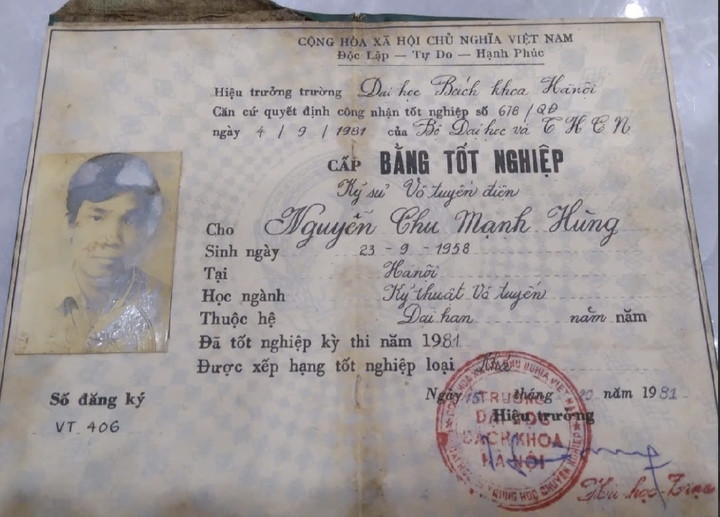 CỘNG HÒA XÃ HỘI CHỦ NGHĨA VIỆT NAM
Độc Lập — Tự Do — Hạnh Phúc
Hiệu trưởng trường Đại học Bách khoa Hà nội
Căn cứ quyết định công nhận tốt nghiệp số 678 / QĐ
ngày 4 / 9 / 1981 của Bộ Đại học và T H C N
CẤP BẰNG TỐT NGHIỆP
Kỹ sư Vô tuyến điện
Cho Nguyễn Chu Mạnh Hùng
Sinh ngày 23 - 9 - 1958
Tại Hà nội
Học ngành Kỹ thuật Vô tuyến
Thuộc hệ Dài hạn năm năm
Đã tốt nghiệp kỳ thi năm 1981
Được xếp hạng tốt nghiệp loại
Ngày 15 tháng 10 năm 1981
Hiệu trưởng
TRƯỜNG
ĐẠI HỌC
BÁCH KHOA
HÀ NỘI
Số đăng ký
VT 406